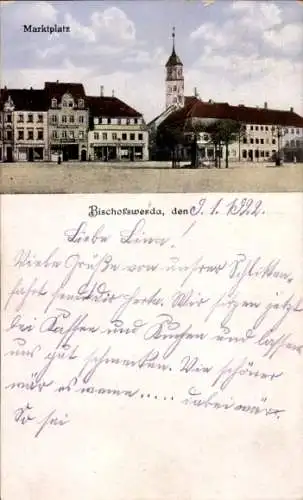 Marktplatz
Bischofswerda, den 9.1.1922.
Liebe Lina!
Viele Grüße von unsrer Schlitten-
fahrt sendet Dir Herta. Wir sitzen jetzt
bei Kaffee und Kuchen und lassen
uns gut schmecken. Wie schöner
wär es wenn ..... dabei wär.
So sei